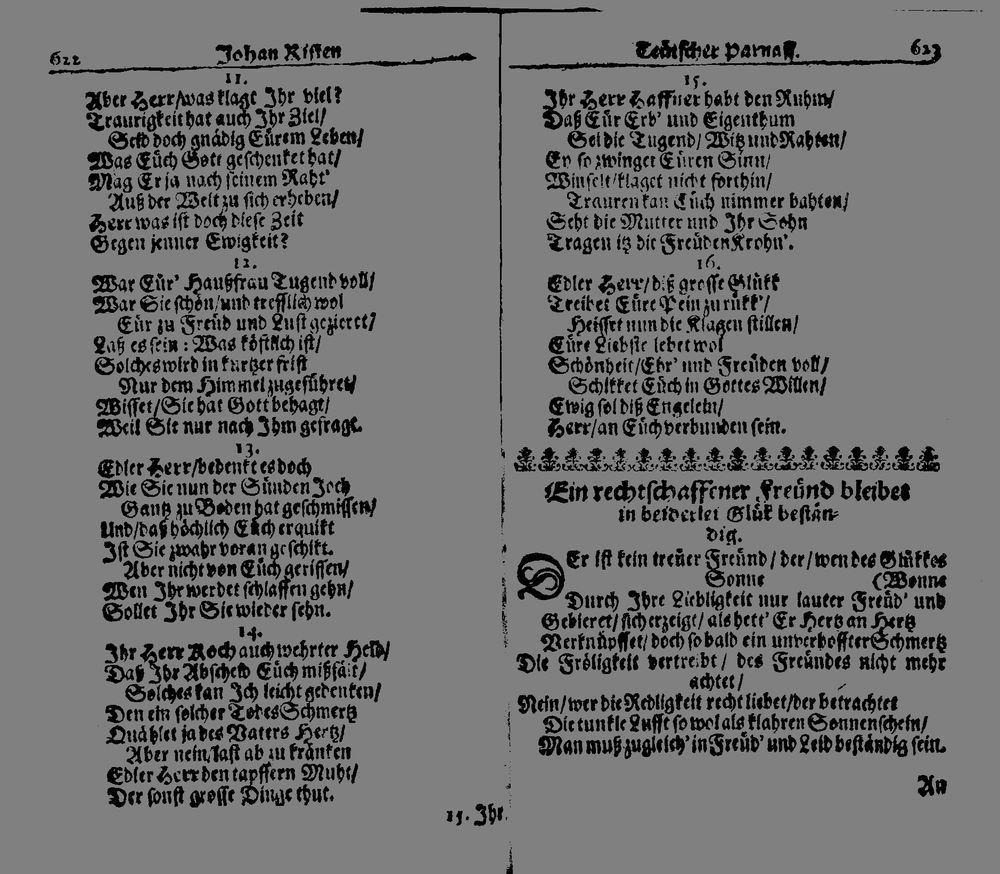 622 Johan Risten
11.
Aber Herr/was klagt Ihr viel?
Traurigkeit hat auch Ihr Ziel/
Seid doch gnädig Eürem Leben/
Was Eüch Gott geschenket hat/
Mag Er ja nach seinem Raht'
Auß der Welt zu sich erheben/
Herr was ist doch diese Zeit
Gegen jenner Ewigkeit?
12.
War Eür' Haußfrau Tugend voll/
War Sie schön/und trefflich wol
Eür zu Freüd und Lust gezieret?
Laß es sein: Was köstlich ist/
Solches wird in kurtzer frist
Nur dem Himmel zugeführet/
Wisset/Sie hat Gott behagt/
Weil Sie nur nach Ihm gefragt.
13.
Edler Herr/bedenkt es doch
Wie Sie nun der Sünden Joch
Gantz zu Boden hat geschmissen/
Und/daß höchlich Eüch erquikt
Ist Sie zwahr voran geschikt.
Aber nicht von Eüch gerissen/
Wen Ihr werdet schlaffen gehn/
Sollet Ihr Sie wieder sehn.
14.
Ihr Herr Koch auch wehrter Held/
Daß Ihr Abscheid Eüch mißfält/
Solches kan Ich leicht gedenken/
Den ein solcher Todes Schmertz
Quählet ja des Vaters Hertz/
Aber nein/last ab zu kränken
Edler Herr den tapffern Muht/
Der sonst grosse Dinge thut.
15. Ihr
Teütscher Parnass. 623
15.
Ihr Herr Haffner habt den Ruhm/
Daß Eür Erb' und Eigenthum
Sei die Tugend/ Witz und Rahten/
Ey so zwinget Eüren Sinn/
Winselt/klaget nicht forthin/
Trauren kan Eüch nimmer bahten/
Seht die Mutter und Ihr Sohn
Tragen itz die Freüden Krohn'.
16.
Edler Herr/diß grosse Glükk
Treibet Eüre Pein zu rükk'/
Heisset nun die Klagen stillen/
Eüre Liebste lebet wol
Schönheit/Ehr' und Freüden voll/
Schikket Eüch in Gottes Willen/
Ewig sol diß Engelein/
Herr/an Eüch verbunden sein.
Ein rechtschaffener Freünd bleibet
in beiderlei Glük bestän-
dig.
Er ist kein treüer Freünd/der/wen des Glükkes
Sonne (Wonne
Durch Ihre Liebligkeit nur lauter Freüd' und
Gebieret/sich erzeigt/als hett' Er Hertz an Hertz
Verknüpffet/doch so bald ein unverhoffter Schmertz
Die Fröligkeit vertreibt/ des Freündes nicht mehr
achtet/
Nein/wer die Redligkeit recht liebet/der betrachtet
Die tunkle Lufft so wol als klahren Sonnenschein/
Man muß zugleich' in Freüd' und Leid beständig sein.
An